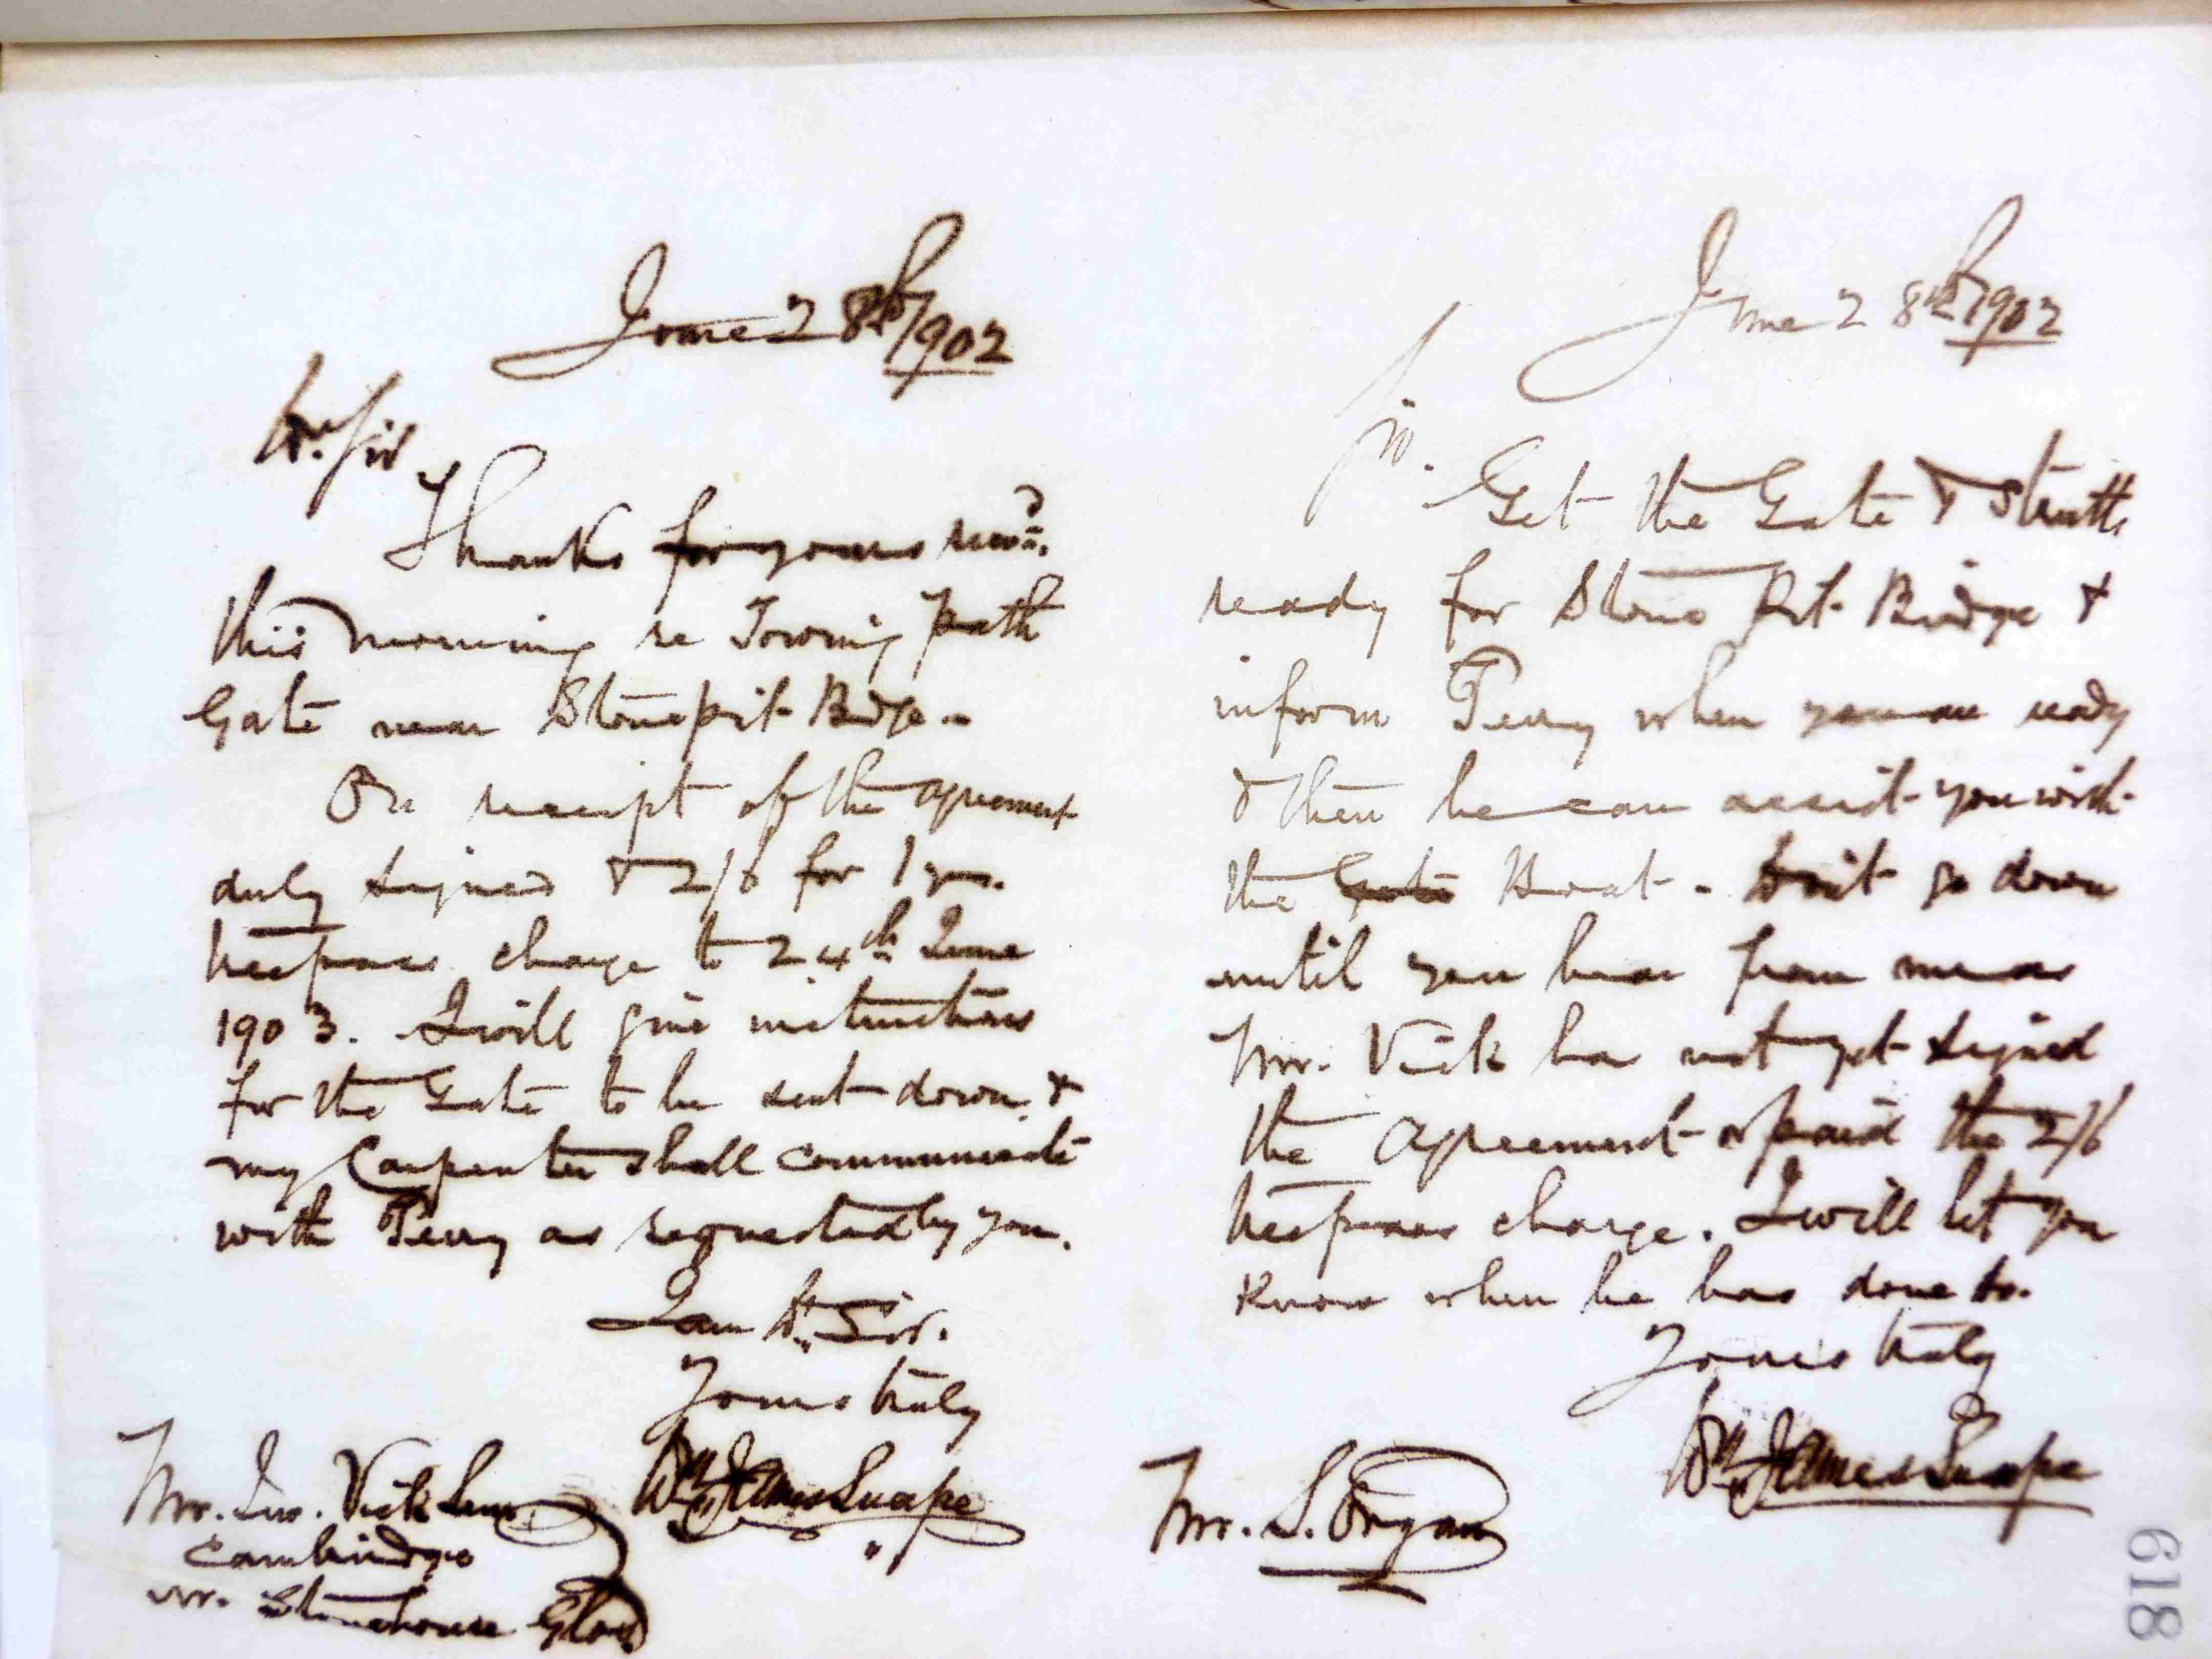 June 28th/1902
Dr. Sir
Thanks for yours recd.
this morning re Towing path
Gate near Stonepit Bdge.
On receipt of the agreement
duly signed & 2/6 for 1 yrs.
trespass charge to 24th June
1903. I will give instructions
for the Gate to be sent down &
my Carpenter shall communicate
with Perry as requested by you.
I am Dr. Sir.
Yours truly
Wm James Snape
Mr. Jno. Vick Senr.
Cambridge
Nr. Stonehouse Glos
June 28th 1902
Sir.
Get the Gate & Strutts
ready for Stone Pit Bridge &
inform Perry when you are ready
& then he can assist you with
the Gate Boat - don't go down
until you hear from me as
Mr. Vick has not yet signed
the agreement or paid the 2/6
trespass charge. I will let you
know when he has done so.
Yours truly
Wm James Snape
Mr. S. Organ
618